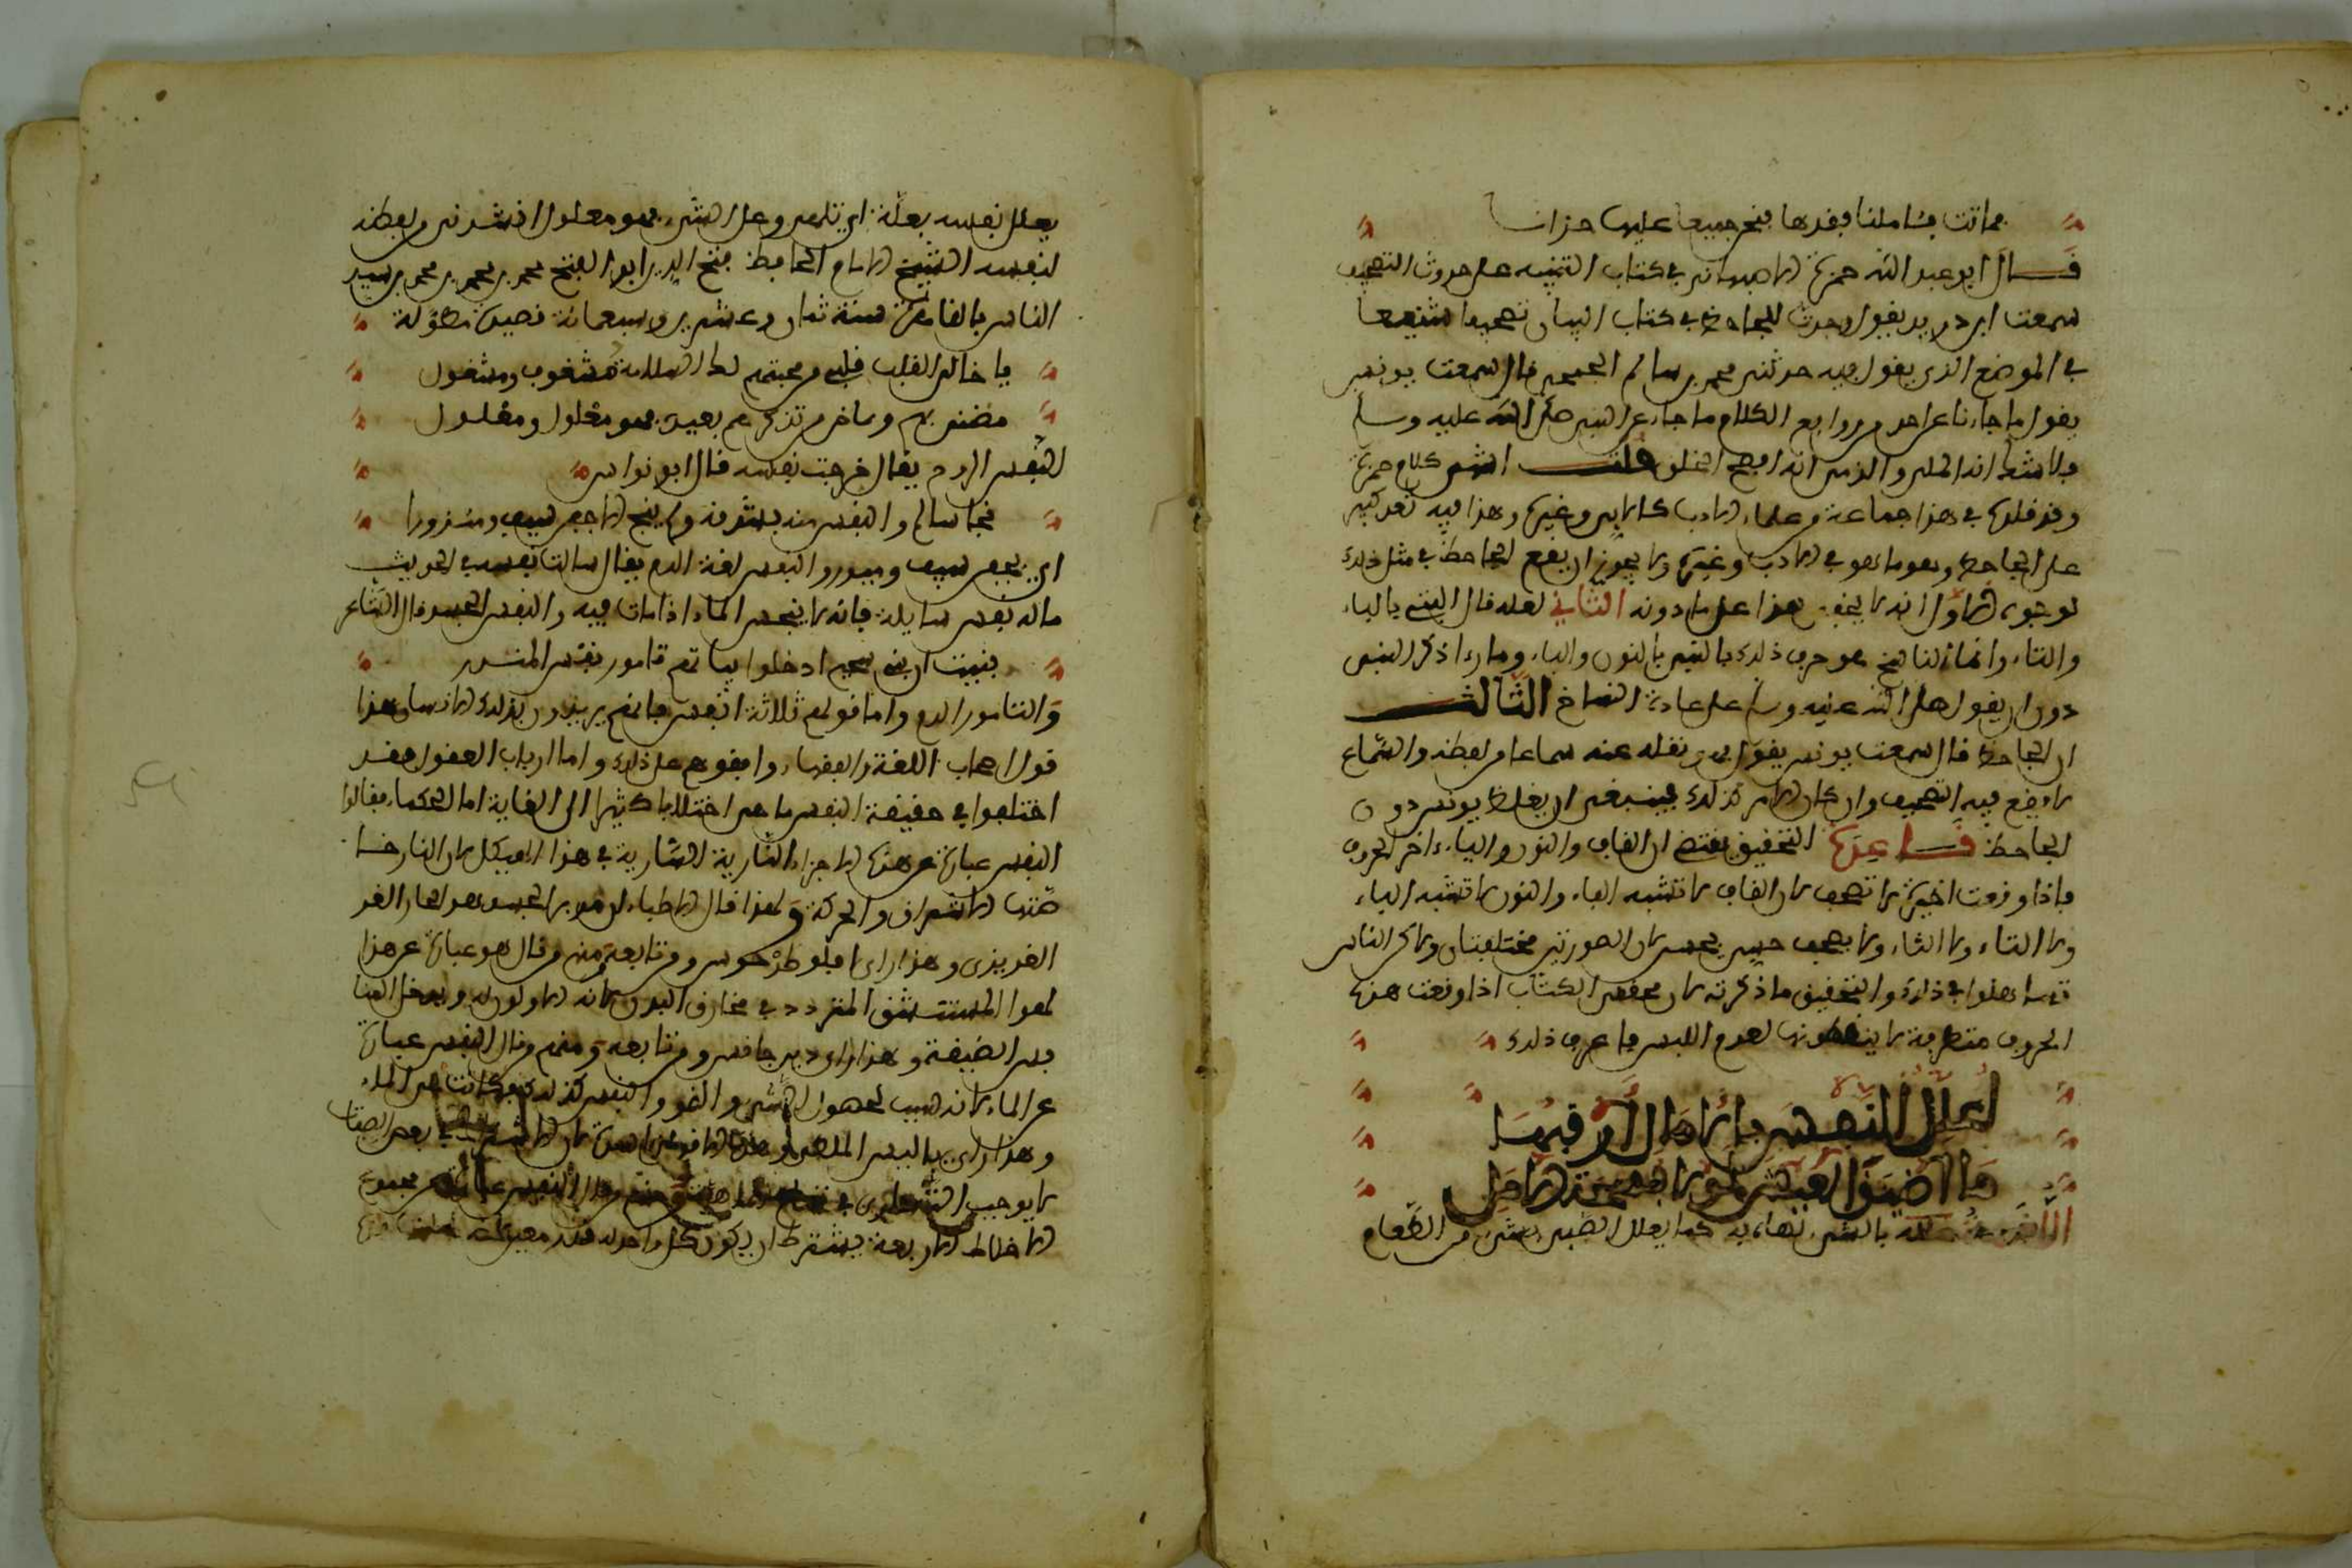 فماتت بشاملنا وبقدها فنحر جميعا عليها حزانا
قال ابو عبد الله حمزة الاصبهاني في كتاب التنبيه على حدوث التصحيف
سمعت ابن دريد يقول وجدت للجاحظ في كتاب البيان تصحيفا شنيعا
في الموضع الذي يقول فيه حدثني محمد بن سلام الجمحي قال سمعت يونس
يقول ما جاءنا عن احد من روايع الكلام ما جاء عن النبي صلى الله عليه وسلم
ولا شك انه الملي والذمي انه افصح الخلق قلت انتهى كلام حمزة
وقد قلده في هذا جماعة من علماء الادب كابن وغيره وهذا فيه تعد كبير
على الجاحظ وهو ما هو في الادب وغيره ولا يجوز ان يقع الجاحظ في مثل ذلك
لوجوه الاول انه لا يخفى هذا على ما دونه الثاني لعله قال البتي بالباء
والتاء وانما الناسخ هو حرف ذلك بالنبي بالنون والباء وما رءا ذكر النبي
دون ان يقول صلى الله عليه وسلم على عادة النساخ الثالث
ان الجاحظ قال سمعت يونس يقول فهو نقله عنه سماعا من لفظه والسماع
لا يقع فيه التصحيف وان كان الامر كذلك فينبغي ان يغلط يونس دون
الجاحظ قاعدة التحقيق يقتضي ان القاف والنون والياء اخر الحروف
فاذا وقعت اخيرة لا تصحف لان القاف لا تشبه الفاء والنون لا تشبه الباء
ولا التاء ولا الثاء ولا يصحف حسن بحسى لان الصورتين مختلفتان ولاكن الناس
تساهلوا في ذلك والتحقيق ما ذكرته لان محققي الكتاب اذا وقعت هذه
الحروف متطرفة لا ينقطونها لعدم اللبس فاعرف ذلك
اعلل النفس بالامال ارقبها
ما اضيق العيش لولا فسحة الامل
اللغة علله بالشيء لهاه به كما يعلل الصبي بشيء من الطعام
يعلل نفسه بعلة اي تلهى وعل الشيء فهو معلول انشدني من لفظه
لنفسه الشيخ الامام الحافظ فتح الدين ابو الفتح محمد بن محمد بن محمد بن سيد
الناس بالقاهرة سنة ثمان وعشرين وسبعمائة قصيدة مطولة
يا خالي القلب قلبي من محبتهم لط السلامة مشغوف ومشغول
مضنى بهم وساخر من تذكرهم بعيد فهو معلول ومغلول
النفس الدم يقال خرجت نفسه قال ابو نواس
نجا سالم والنفس منه بشدقه ولم ينج الا جفن سيف ومئزورا
اي بجفن سيف وميزر والنفس لغة الدم يقال سالت نفسه في الحديث
ما له نفس سايلة فانه لا ينجس الماء اذا مات فيه والنفس الجسد قال الشاعر
نبيت ان بني سحيم ادخلوا ابياتهم تامور نفس المنذر
والتامور الدم واما قولهم ثلاثة انفس فانهم يريدون بذلك الانسان هذا
قول اصحاب اللغة والفقهاء وافقوهم على ذلك واما ارباب العقول فقد
اختلفوا في حقيقة النفس ما هي اختلافا كثيرا الى الغاية اما الحكماء فقالوا
النفس عبارة عن هذه الاجزاء النارية السارية في هذا الهيكل لان النار خا
صتها الاشراق والحركة ولهذا قال الاطباء ان مدبر الجسد هو الحار الغر
الغريزي وهذا راي افلوطرخوس ومن تابعه ومنهم من قال هو عبارة عن هذا
الهوا المستنشق المتردد في مخارق البدن لانه الاولون له ويدخل المنا
فس الضيقة وهذا راي ديوجانس ومن تابعه ومنهم من قال النفس عبارة
عن الماء لانه سبب لحصول النشو والنمو والنفس كذلك فكانت هي الماء
وهذا راي ثاليس الملطي في بعض الصفات
لا يوجب التساوي في تمام الماهية ومنهم من قال النفس عبارة عن مجموع
الاخلاط الاربعة بشرط ان يكون كل واحد له قدر معين